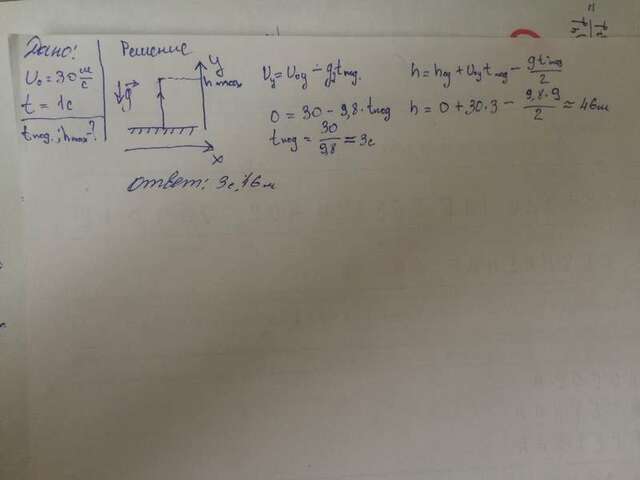 Дано:
υ₀ = 30 м/с
t = 1с
tпод.; hmax - ?
Решение
g
y
h max
x
υy = υ₀y - gy tпод.
0 = 30 - 9,8 · tпод
tпод = 30/9,8 ≈ 3с
h = h₀y + υ₀y tпод - gt²под/2
h = 0 + 30·3 - 9,8·9/2 ≈ 46м
ответ: 3с, 46 м